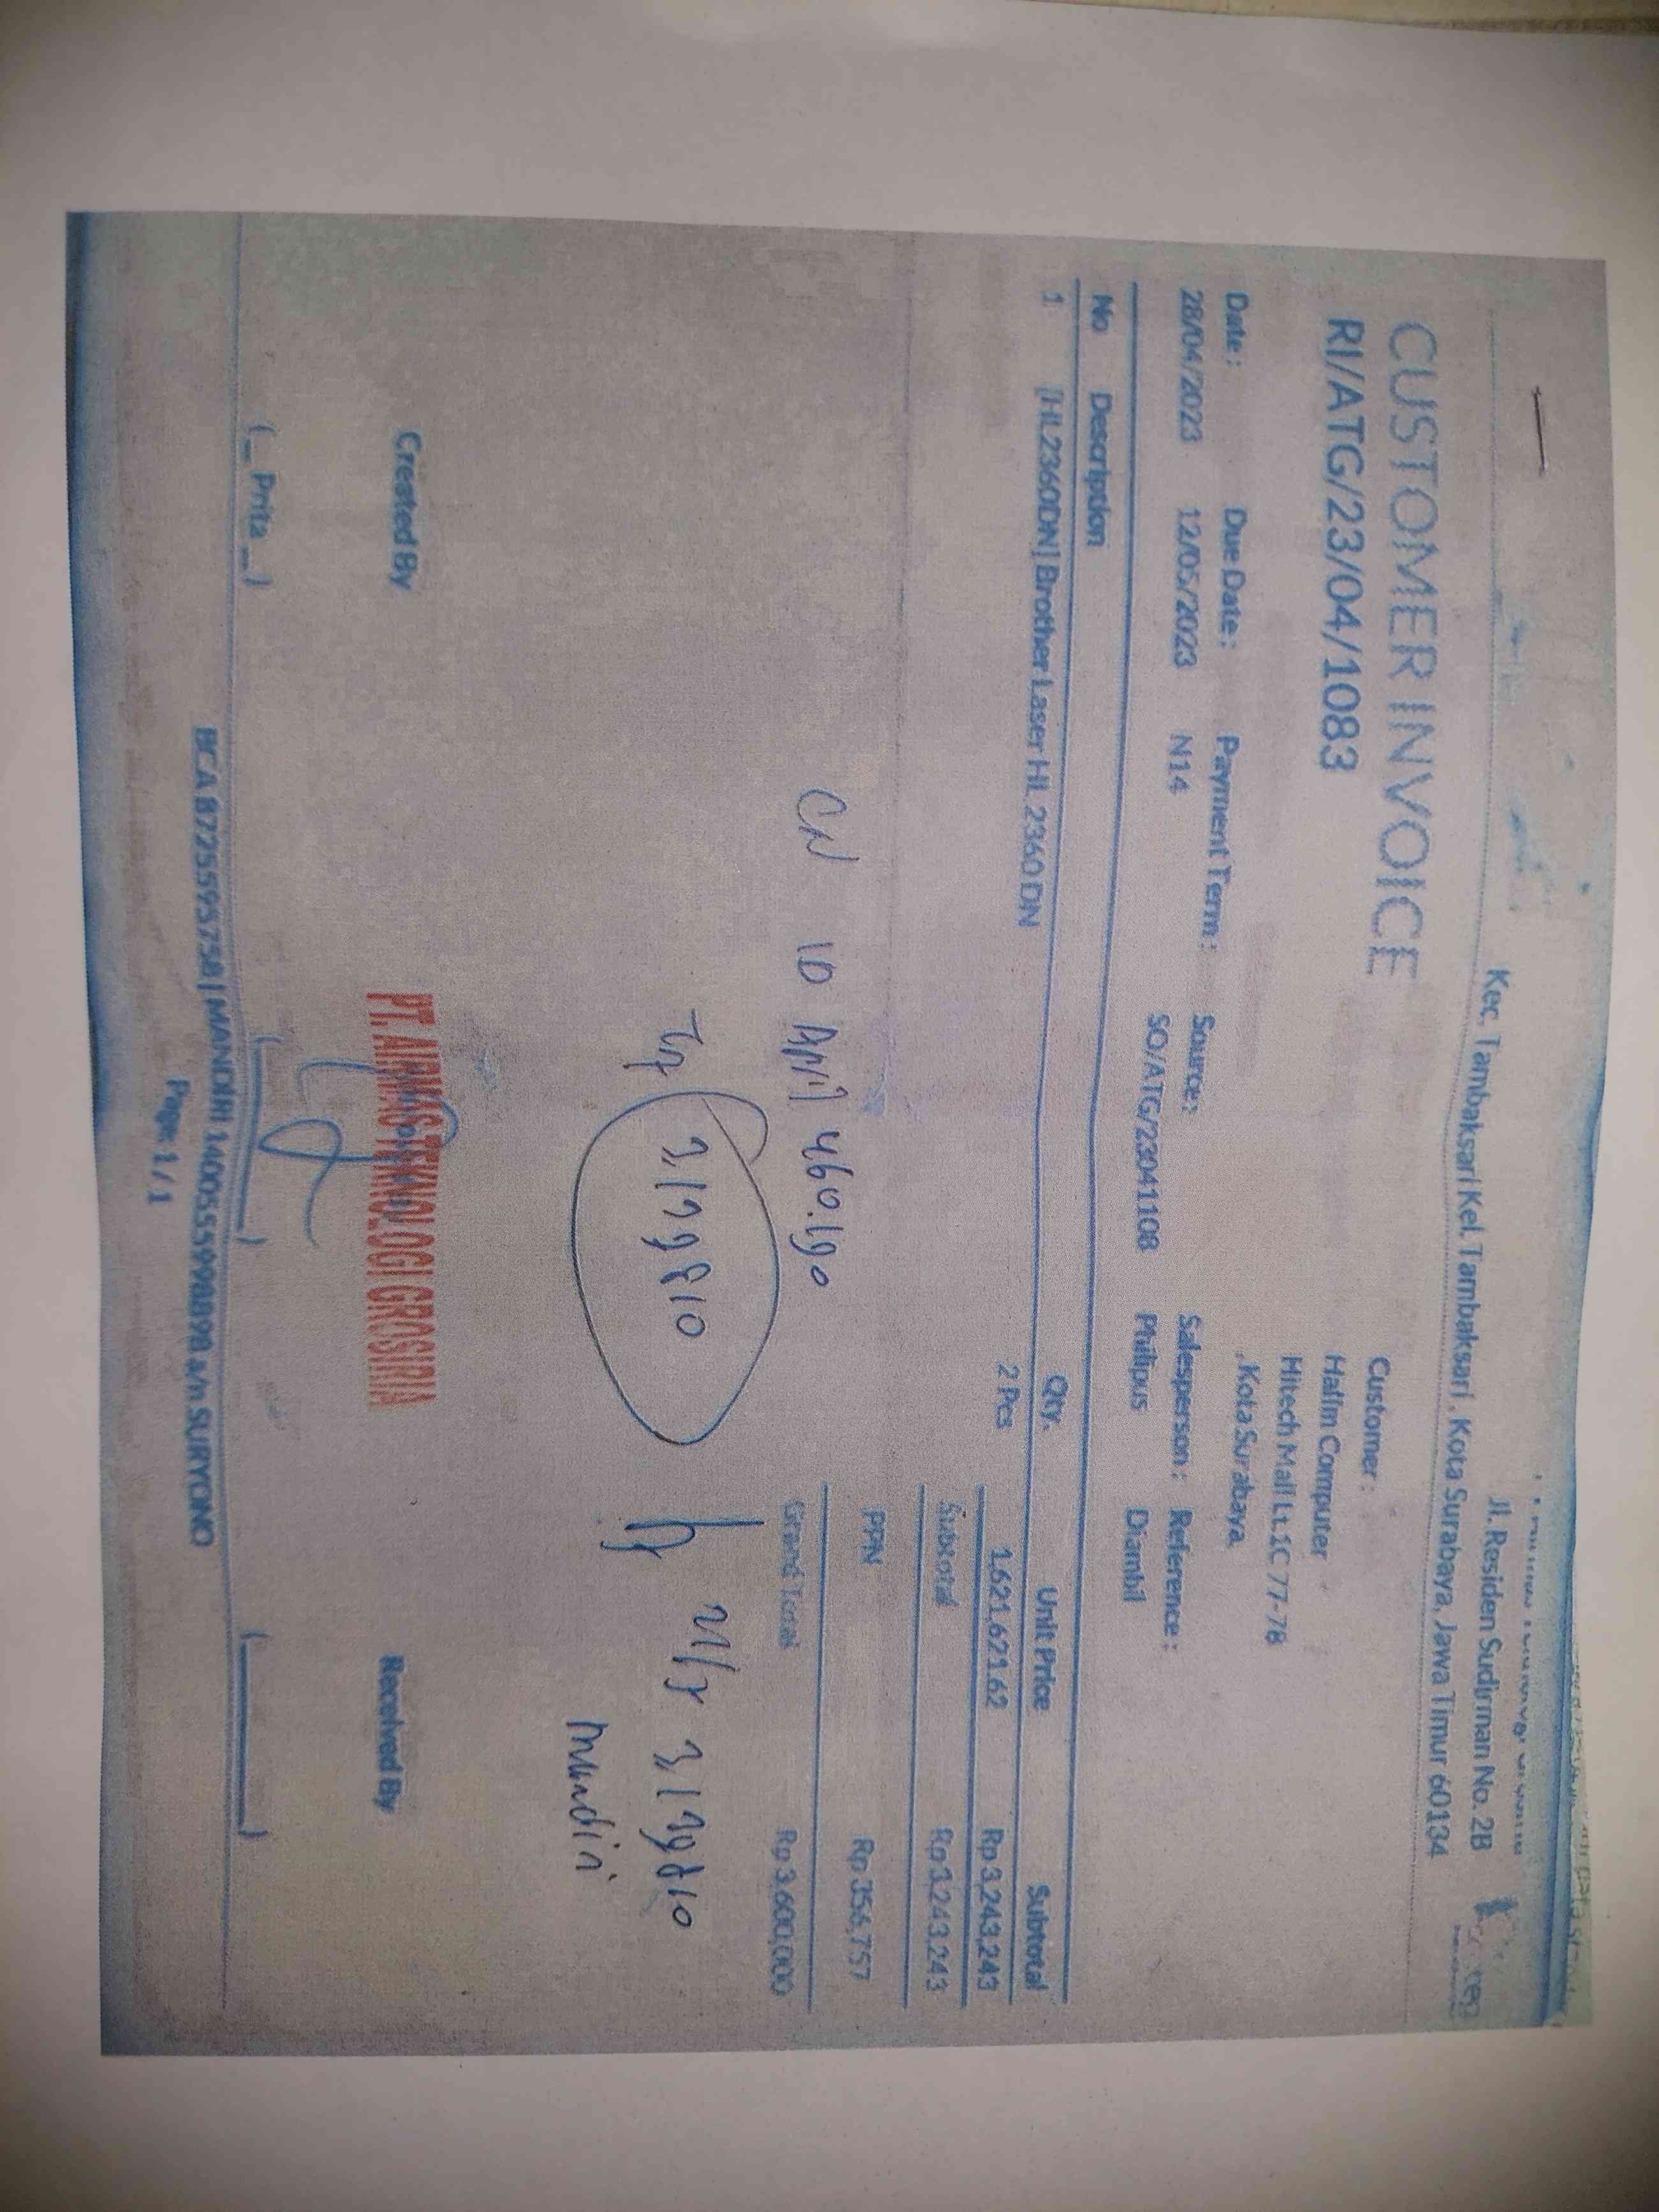 Jl. Residen Sudirman No. 2B
Kec. Tambaksari Kel. Tambaksari , Kota Surabaya, Jawa Timur 60134
CUSTOMER INVOICE
RI/ATG/23/04/1083
Customer :
Halim Computer
Hitech Mall Lt.1C 77-78
, Kota Surabaya
Date : Due Date : Payment Term : Source : Salesperson : Reference :
28/04/2023 12/05/2023 N14 SO/ATG/23041108 Philipus Diambil
No Description Qty. Unit Price Subtotal
1 [HL2360DN] Brother Laser HL 2360 DN 2 Pcs 1.621.621.62 Rp 3,243,243
Subtotal Rp 3,243,243
PPN Rp 356,757
Grand Total Rp 3,600,000
CN ID April 460.190
3.139.810
3.139.810
Mandiri
Created By Received By
PT. AIRMAS TEKNOLOGI GROSIRIA
(_ Prita _ _)
BCA 8725595758 | MANDIRI 1400555998898 a/n SURYONO
Page: 1 / 1